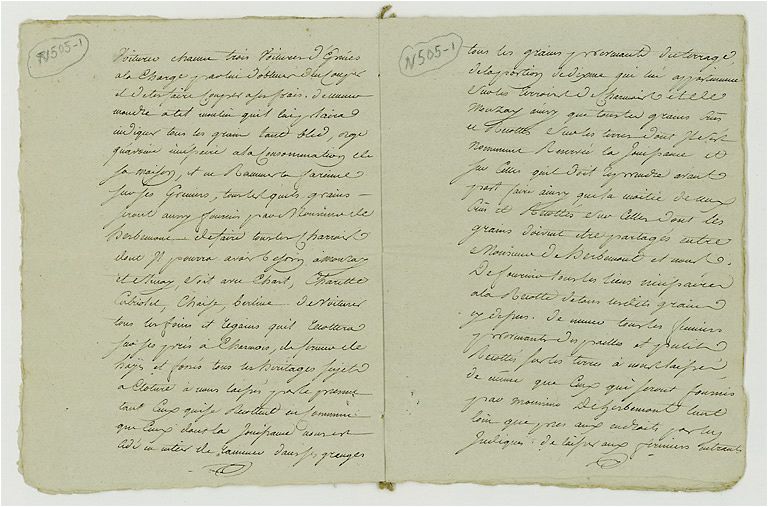 N505-1
Voitures chacune trois Voitures d'Epines
a la Charge par lui d'obtenir du Couper
et de les faire Couper a ses frais. de mener
moudre a tel moulin qu'il lui plaira
indiquer tous les grains tant bled, orge
que avoine necessaire a la Consommation de
sa maison, et en Ramener la farine
sur ses Greniers, tous lesquels grains
seront aussy fournis par Monsieur de
herbemont de faire tous les Charrois
dont Il pourra avoir besoin a Mouzay
et Stenay, soit avec Chart, Charette
Cabriolet, Chaise, berline. de Voiturer
tous les foins et regains qu'il recoltera
sur ses prés a Charmois, de fermer de
hayes et fossés tous les heritages sujets
a Cloture a nous laissés par le present
tant Ceux qui se recoltent en
que Ceux dont la Jouissance nous est
de ramener dans ses granges
N505-1
tous les grains provenants du terrage,
de la portion de dixme qui lui appartiennent
Sur les terroirs de Charmois et de
Mouzay aussy que tous les grains Crus
et Recoltés Sur les terres dont Il s'est
nommement Reservé la Jouissance et
sur Celles qu'il doit Reprendre avant
part faire aussy que la moitié de ceux
Crus et Recoltés Sur Celles dont les
grains doivent etre partagés entre
Monsieur de herbemont et nous.
De fournir tous les liens necessaires
a la Recolte de tous lesdits grains
cy dessus. de mener tous les fumiers
provenants des pailles et
Recoltés sur les terres a nous laissées,
de même que Ceux qui seront fournis
par monsieur De herbemont tant
loin que pres aux endroits par luy
Indiqués. de laisser aux fermiers entrants